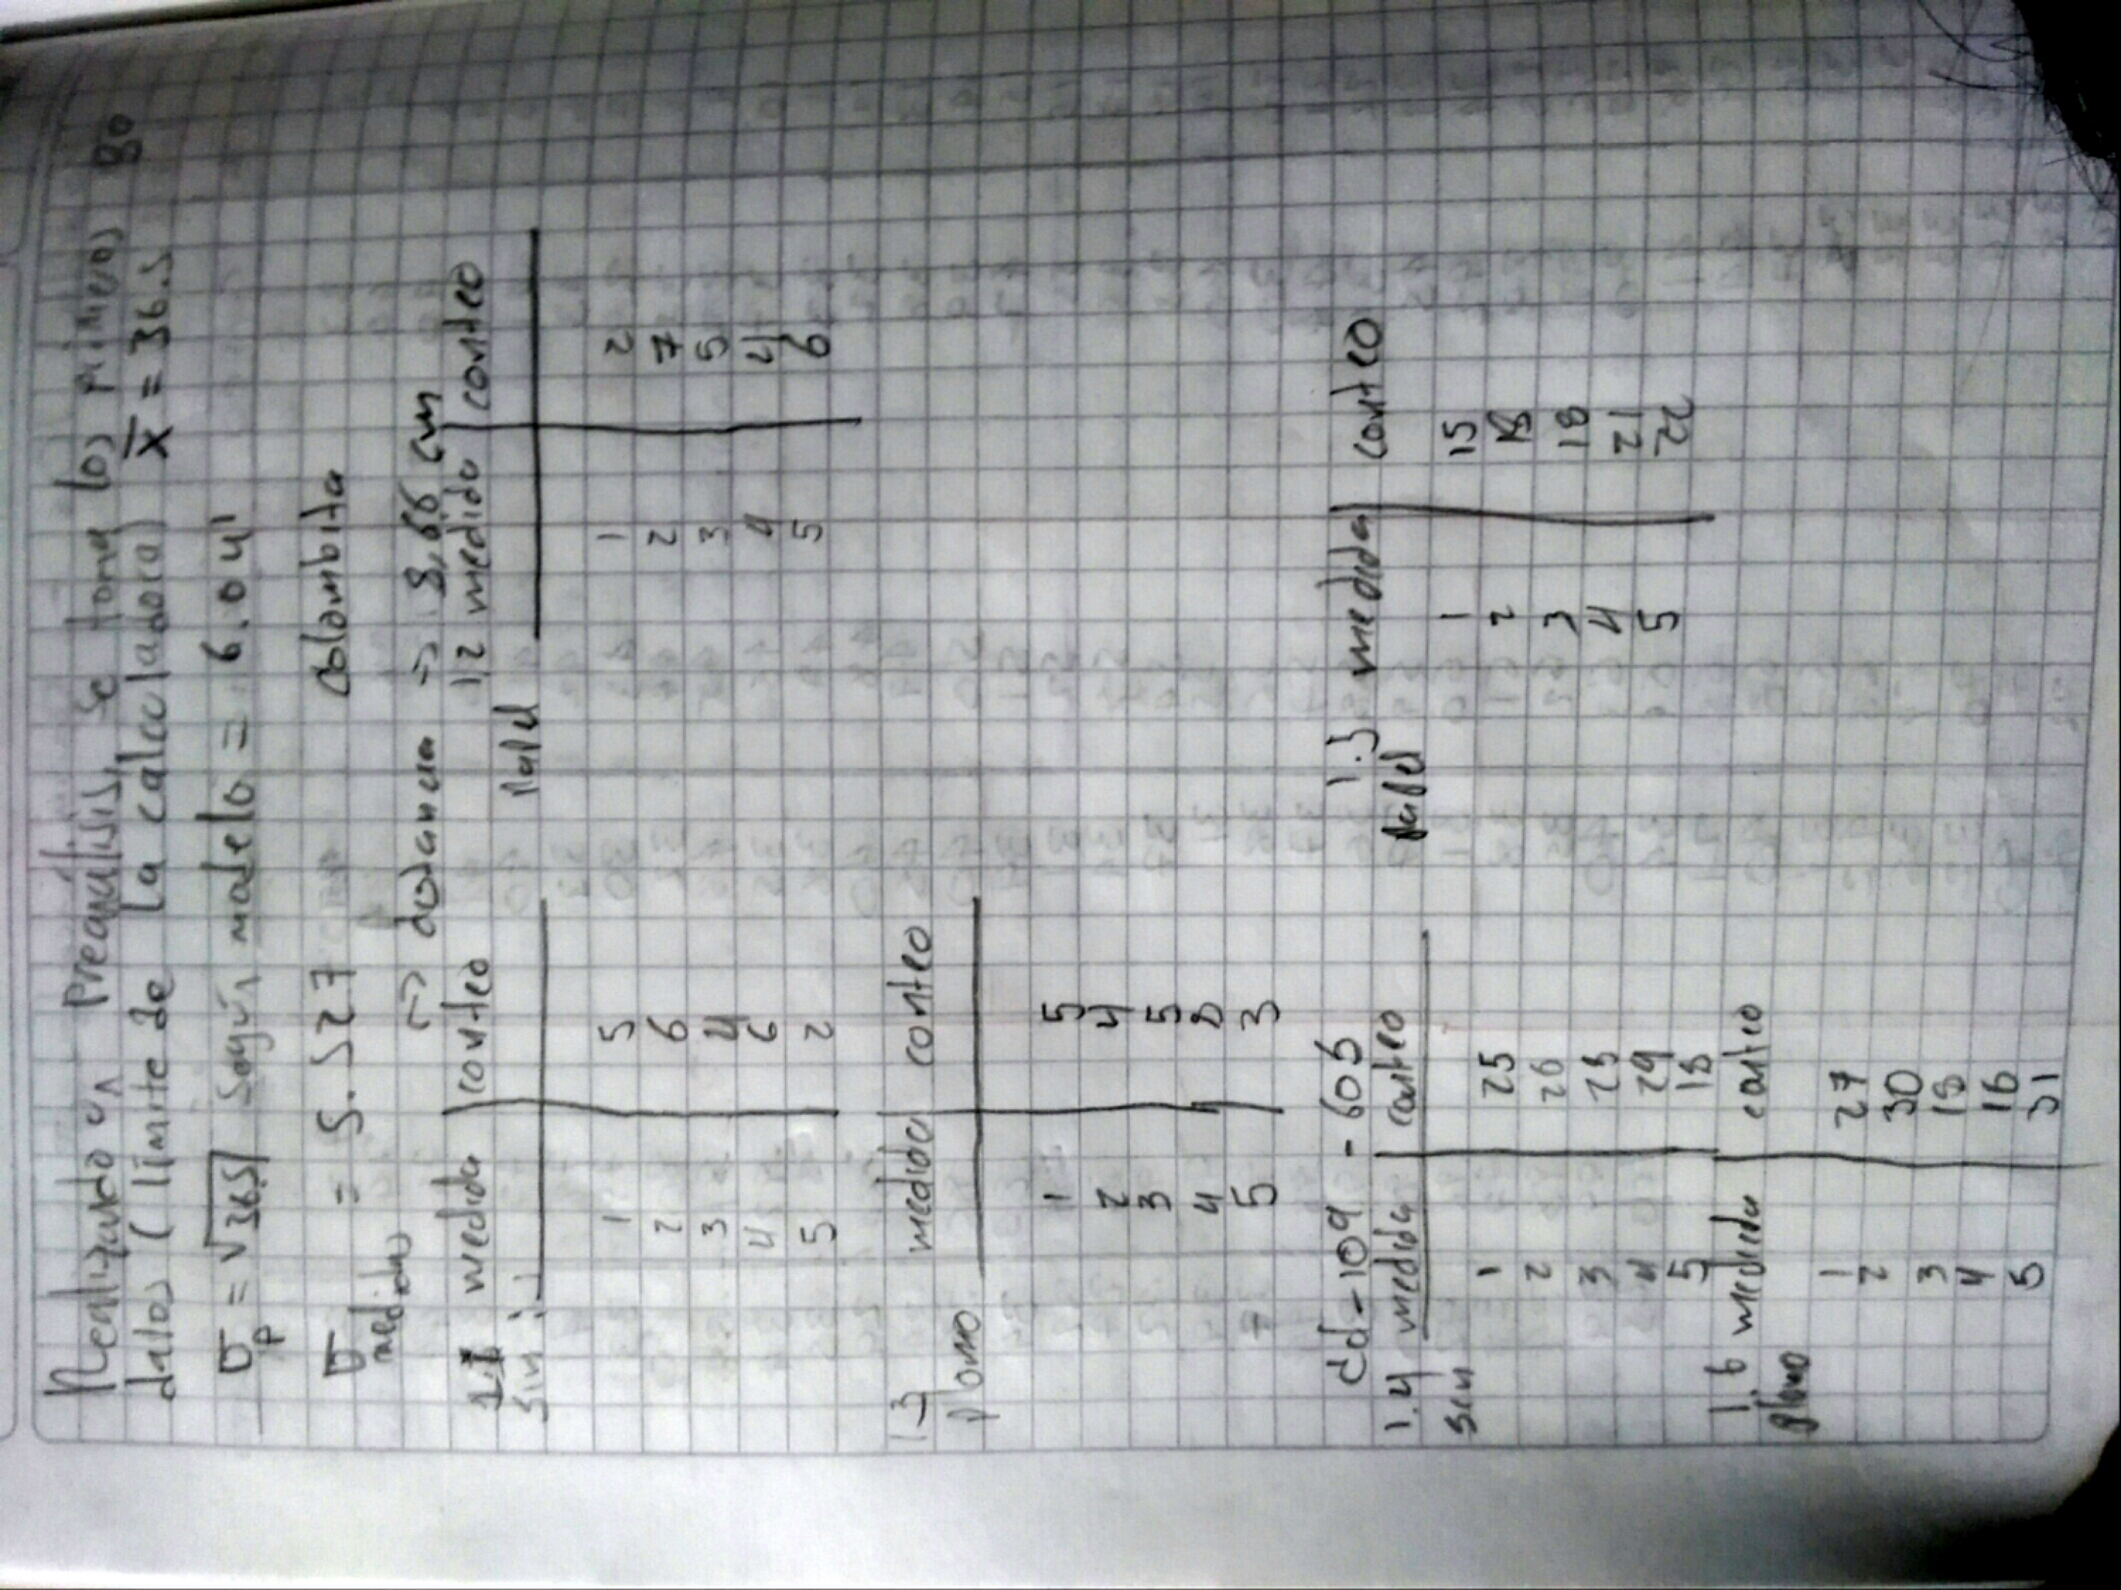 Realizando un Preanálisis, se toma los primeros 80
datos (límite de la calculadora) x̄ = 36.5
σp = √36.5 según modelo = 6.041
σ medidas = 5.527 colombita
=> distancia => 8,66 cm
1.1 medida conteo
sin
1 5
2 6
3 4
4 6
5 2
1,2 medida conteo
Papel
1 2
2 7
3 5
4 4
5 6
1.3 medida conteo
plomo
1 5
2 4
3 5
4 8
5 3
cd-109 - 605
1.4 medida conteo
sin
1 25
2 26
3 23
4 29
5 18
1.5 medida conteo
papel
1 15
2 18
3 18
4 21
5 22
1.6 medida conteo
plomo
1 27
2 30
3 18
4 16
5 31